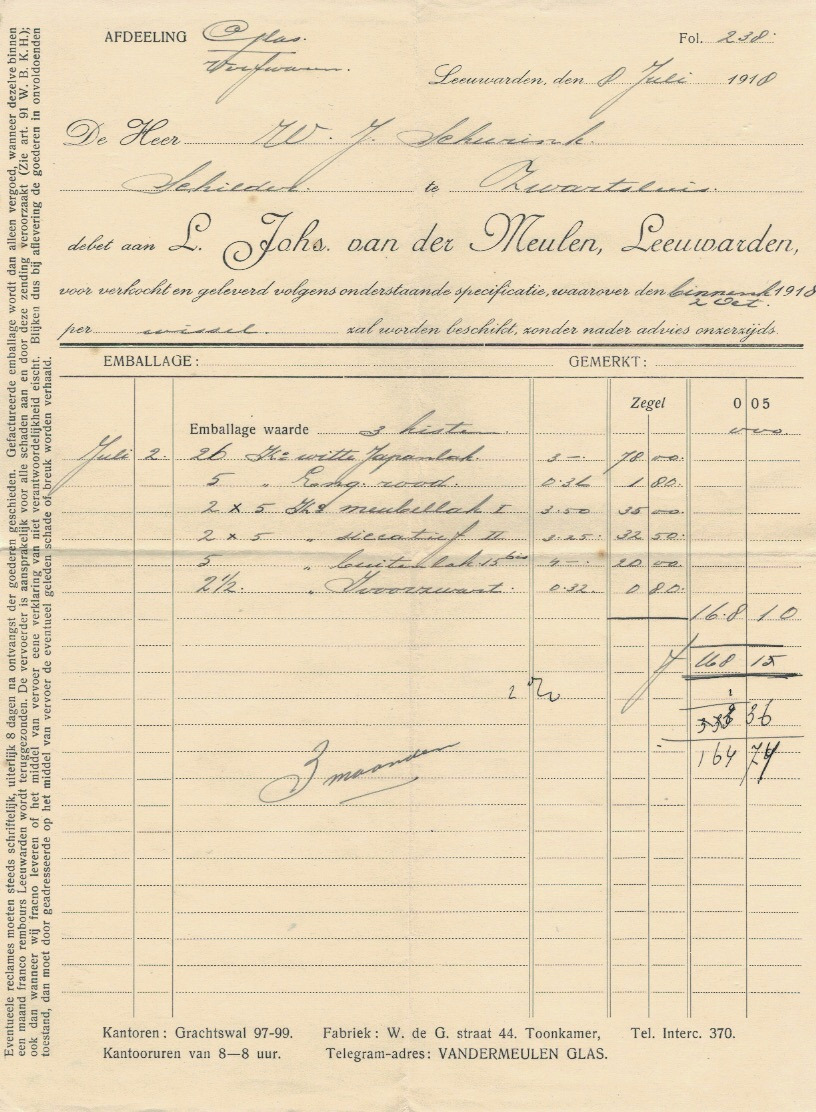 AFDEELING Glas.
Verfwaren.
Fol. 238.
Leeuwarden, den 8 Juli 1918
De Heer W. J. Schurink.
Schilder. te Zwartsluis.
debet aan L. Johs. van der Meulen, Leeuwarden,
voor verkocht en geleverd volgens onderstaande specificatie, waarover den binnenk 1918
2 Oct.
per wissel. zal worden beschikt, zonder nader advies onzerzijds.
EMBALLAGE: GEMERKT:
Zegel 0 05
Emballage waarde 3 kisten.
Juli 2. 26 Ko witte Japanlak. 3.— 78 00.
5 „ Eng. rood. 0.36 1 80.
2 x 5 Ko meubellak I 3.50 35 00.
2 x 5 „ siccatief II 3.25. 32 50.
5 „ buitenlak 15 bis 4.— 20 00.
2 1/2. „ Ivoorzwart. 0.32. 0 80.
168 10
f 168 15
2 %
36
164 74
3 maanden
Kantoren: Grachtswal 97-99. Fabriek: W. de G. straat 44. Toonkamer, Tel. Interc. 370.
Kantooruren van 8—8 uur. Telegram-adres: VANDERMEULEN GLAS.
Eventueele reclames moeten steeds schriftelijk, uiterlijk 8 dagen na ontvangst der goederen geschieden. Gefactureerde emballage wordt dan alleen vergoed, wanneer dezelve binnen
een maand franco rembours Leeuwarden wordt teruggezonden. De vervoerder is aansprakelijk voor alle schaden aan en door deze zending veroorzaakt (Zie art. 91 W. B. K. H.);
ook dan wanneer wij fracno leveren of het middel van vervoer eene verklaring van niet verantwoordelijkheid eischt. Blijken dus bij aflevering de goederen in onvoldoenden
toestand, dan moet door geadresseerde op het middel van vervoer de eventueel geleden schade of breuk worden verhaald.